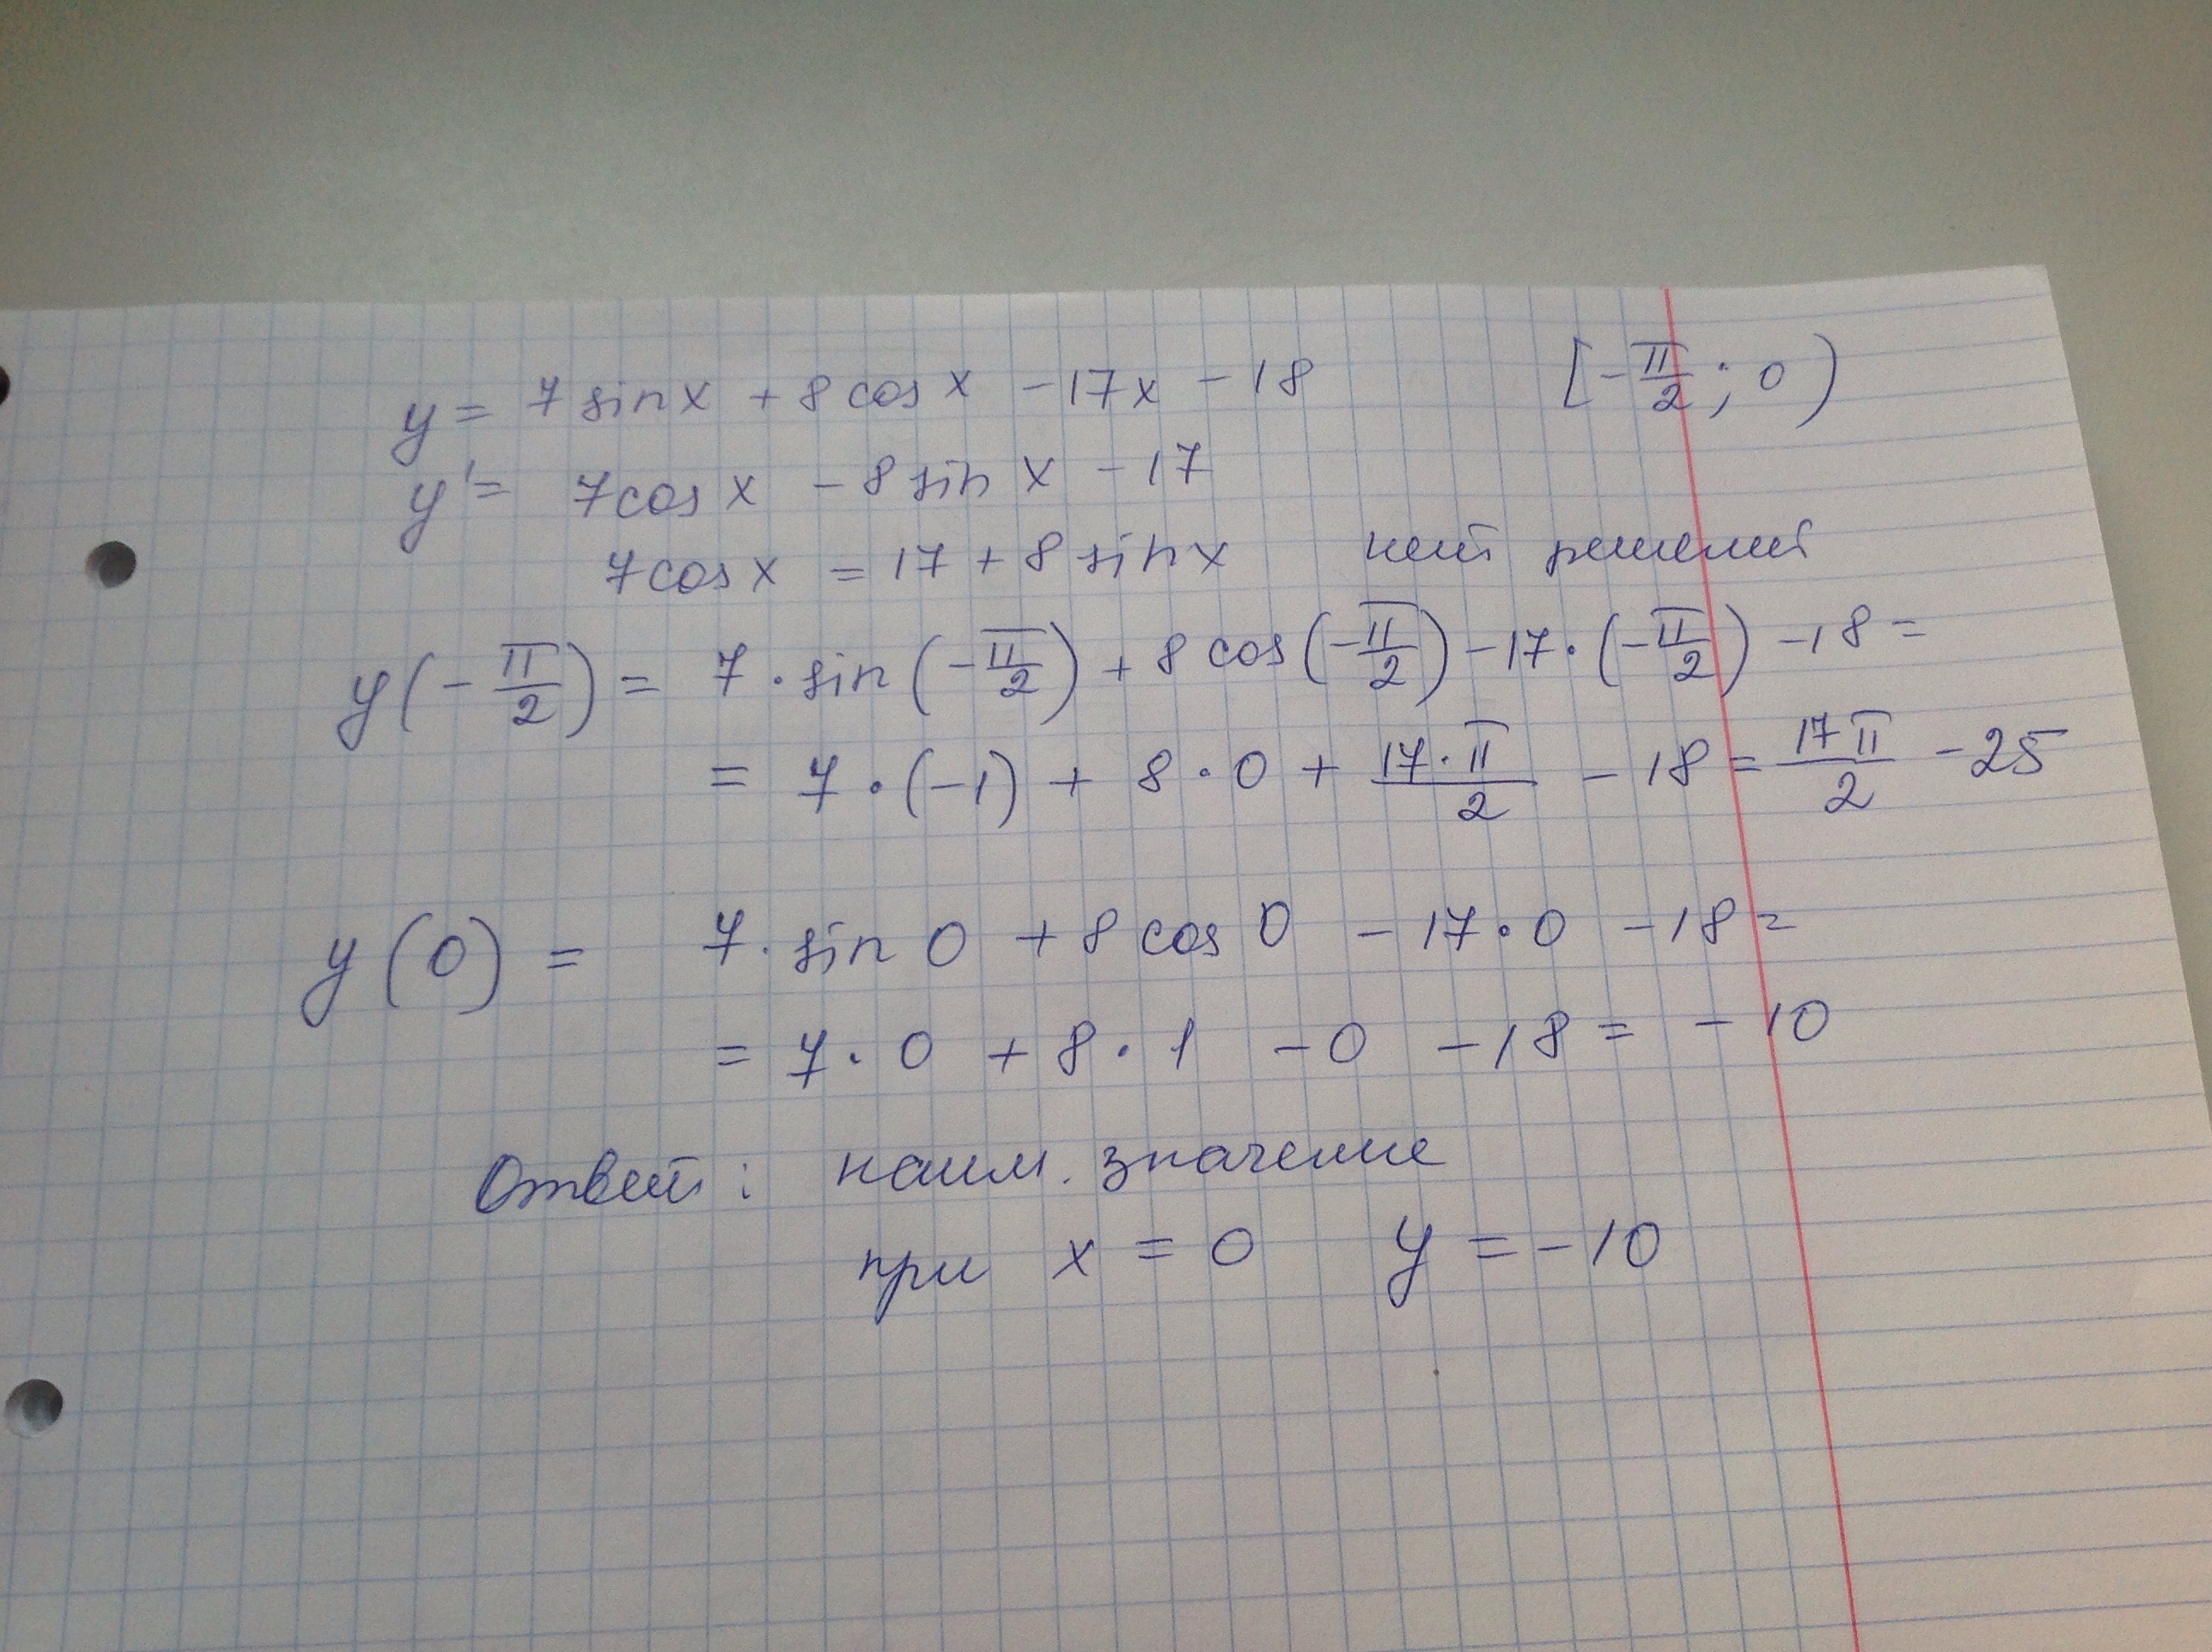 y = 7 sin x + 8 cos x - 17x - 18 [-π/2 ; 0)
y' = 7cos x - 8 sin x - 17
7cos x = 17 + 8 sin x нет решений
y(-π/2) = 7 · sin(-π/2) + 8 cos(-π/2) - 17 · (-π/2) - 18 =
= 7 · (-1) + 8 · 0 + 17·π/2 - 18 = 17π/2 - 25
y(0) = 7 · sin 0 + 8 cos 0 - 17 · 0 - 18 =
= 7 · 0 + 8 · 1 - 0 - 18 = - 10
Ответ: наим. значение
при x = 0 y = -10